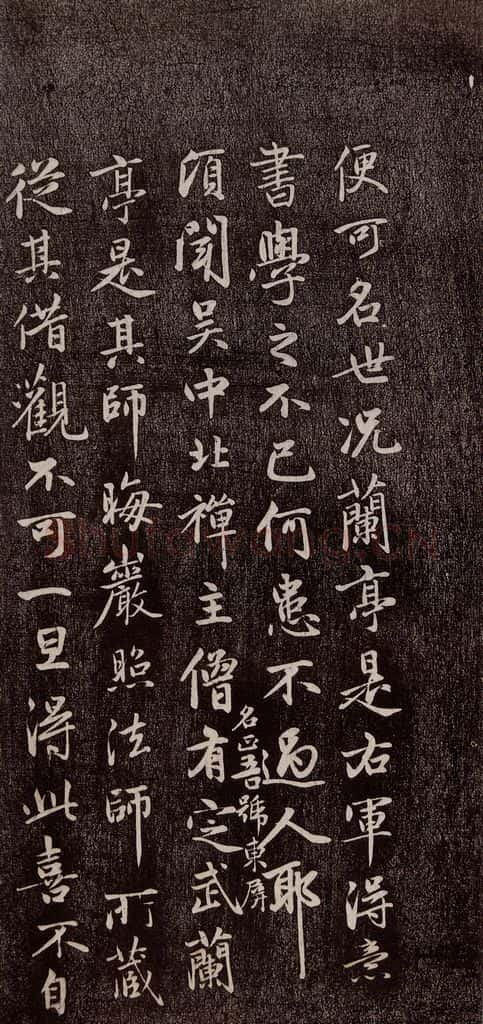 便可名世况蘭亭是右軍得意
書學之不已何患不過人耶
名正吾號東屏
頃聞吳中北禪主僧有定武蘭
亭是其師晦巖照法師所藏
從其借觀不可一旦得此喜不自